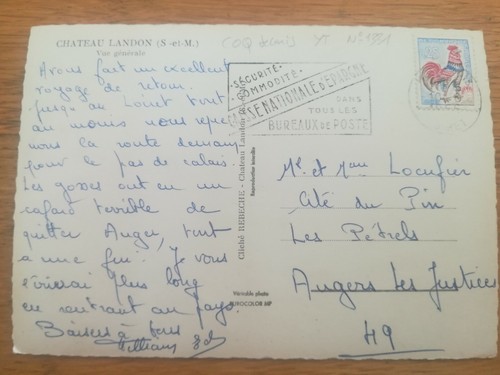 CHATEAU LANDON (S.-et-M.)
Vue générale
Avons fait un excellent
voyage de retour.
jusqu'au Loiret tout
au moins nous repre
nons la route demain
pour le pas de calais.
Les gosses ont eu un
cafard terrible de
quitter Anger, tout
a une fin. Je vous
écrirai plus long
en rentrant au pays.
Baisers à tous
Cliché REBECHE - Chateau Landon
Reproduction interdite
Véritable photo
EUROCOLOR MP
COQ YT N° 1331
SÉCURITÉ
COMMODITÉ
CAISSE NATIONALE D'EPARGNE
DANS
TOUS LES
BUREAUX DE POSTE
Mr et Mme
Cité du Pin
Les Pétrels
Angers les Justices
49